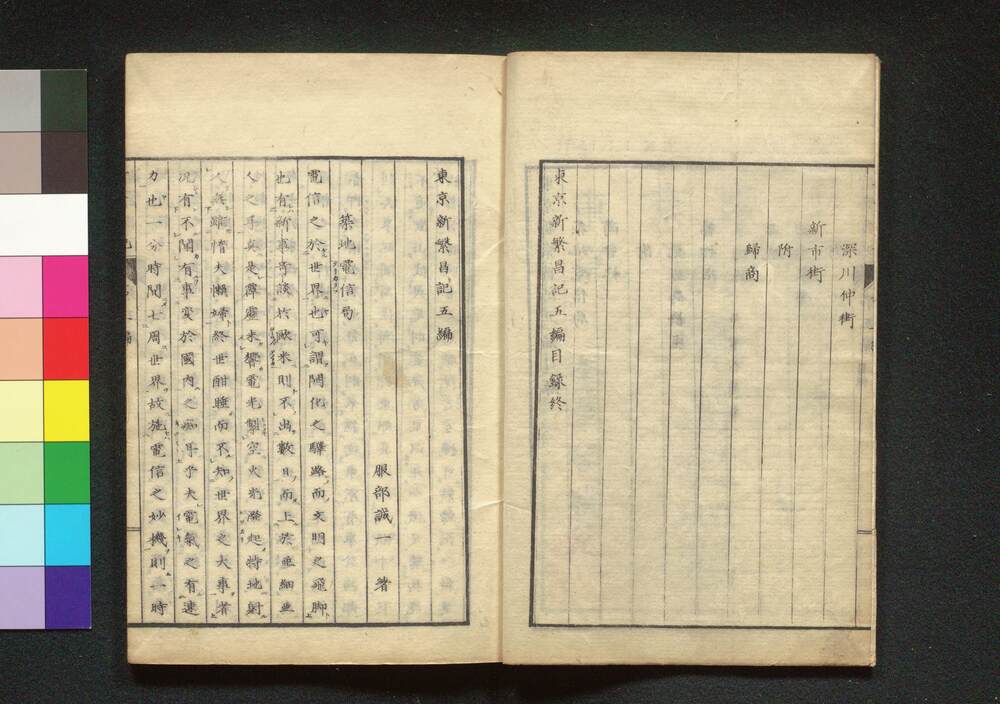 深川仲街
新市街
附
歸商
東京新繁昌記五編目録終
東京新繁昌記五編
服部誠一著
築地電信局
電信之於世界也可謂開化之驛路而文明之飛脚
也有新事奇談於歐米則不出數日而上於亞細亞
人之手矣是霹靂未響電光掣空火光激起特地射
人
雖懶大懶婦終世酣睡而不知世界之大事者
況有不聞有事変於國内之痴耳乎大電氣之有速
力也一分時間七周世界故施電信之妙機則一時